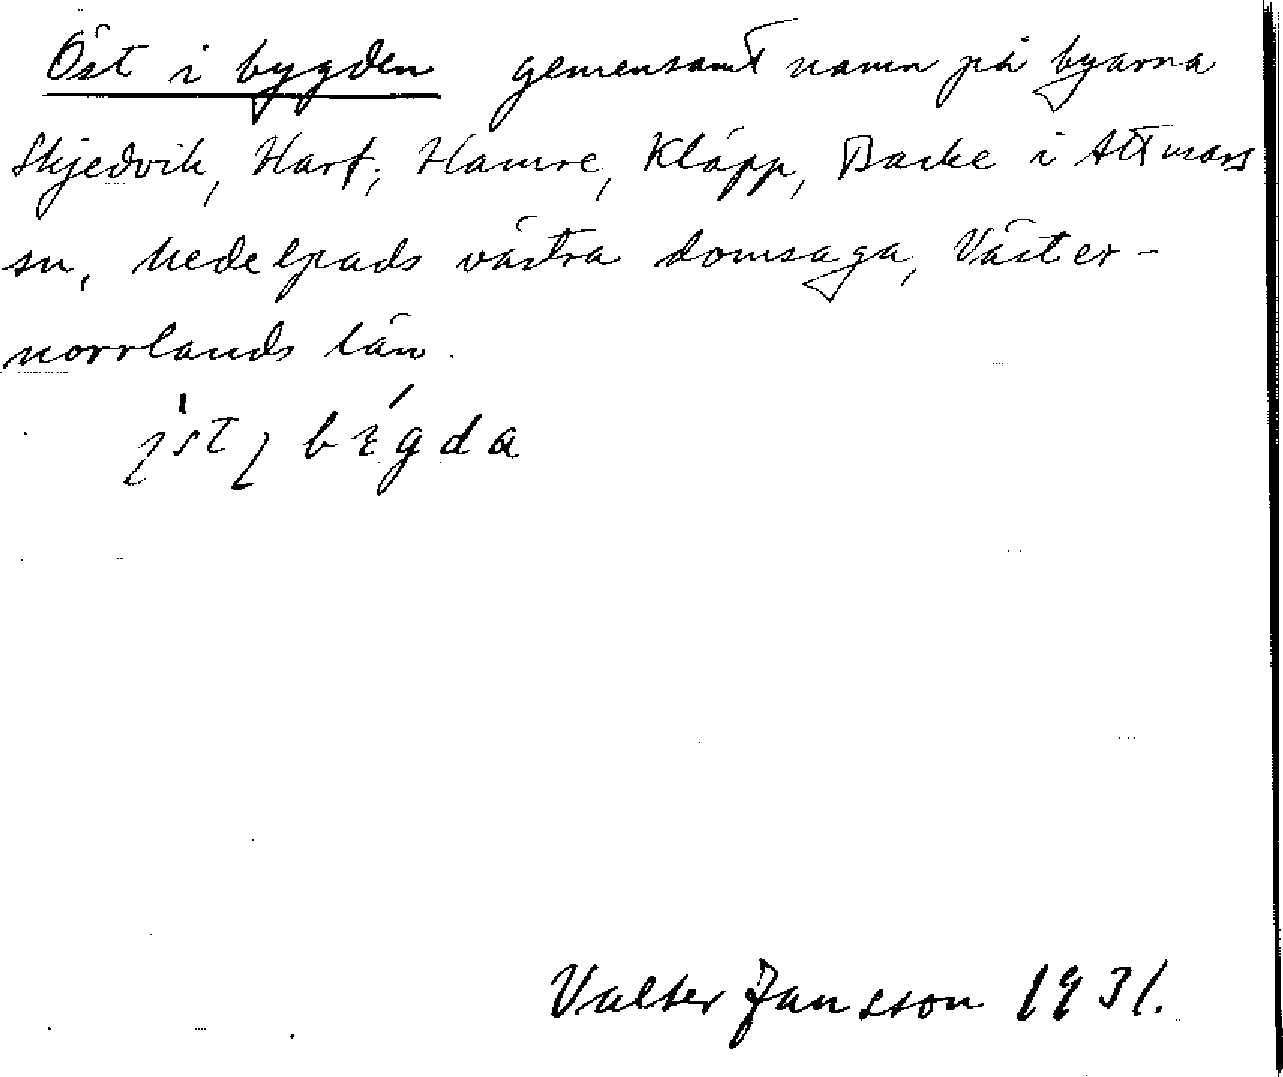 Öst i bygden gemensamt namn på byarna
Skjedvik, Harf, Hamre, Kläpp, Backe i Attmars
sn, Medelpads västra domsaga, Väster-
norrlands län.
Valter Jansson 1931.